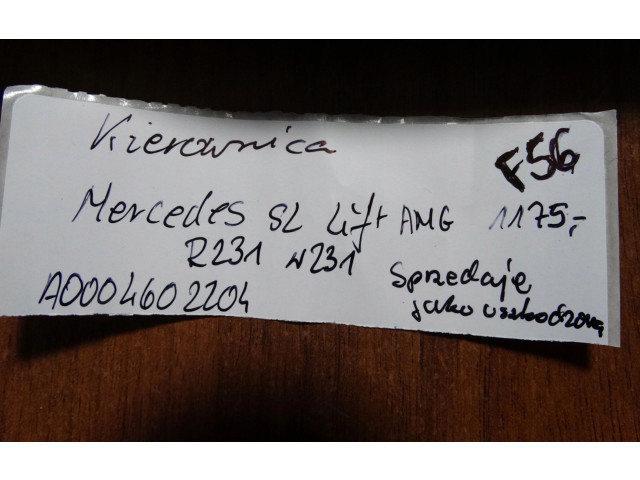 Kierownica
F56
Mercedes SL Lift AMG 1175,-
R231 W231
A0004602204
Sprzedaję
jako uszkodzoną